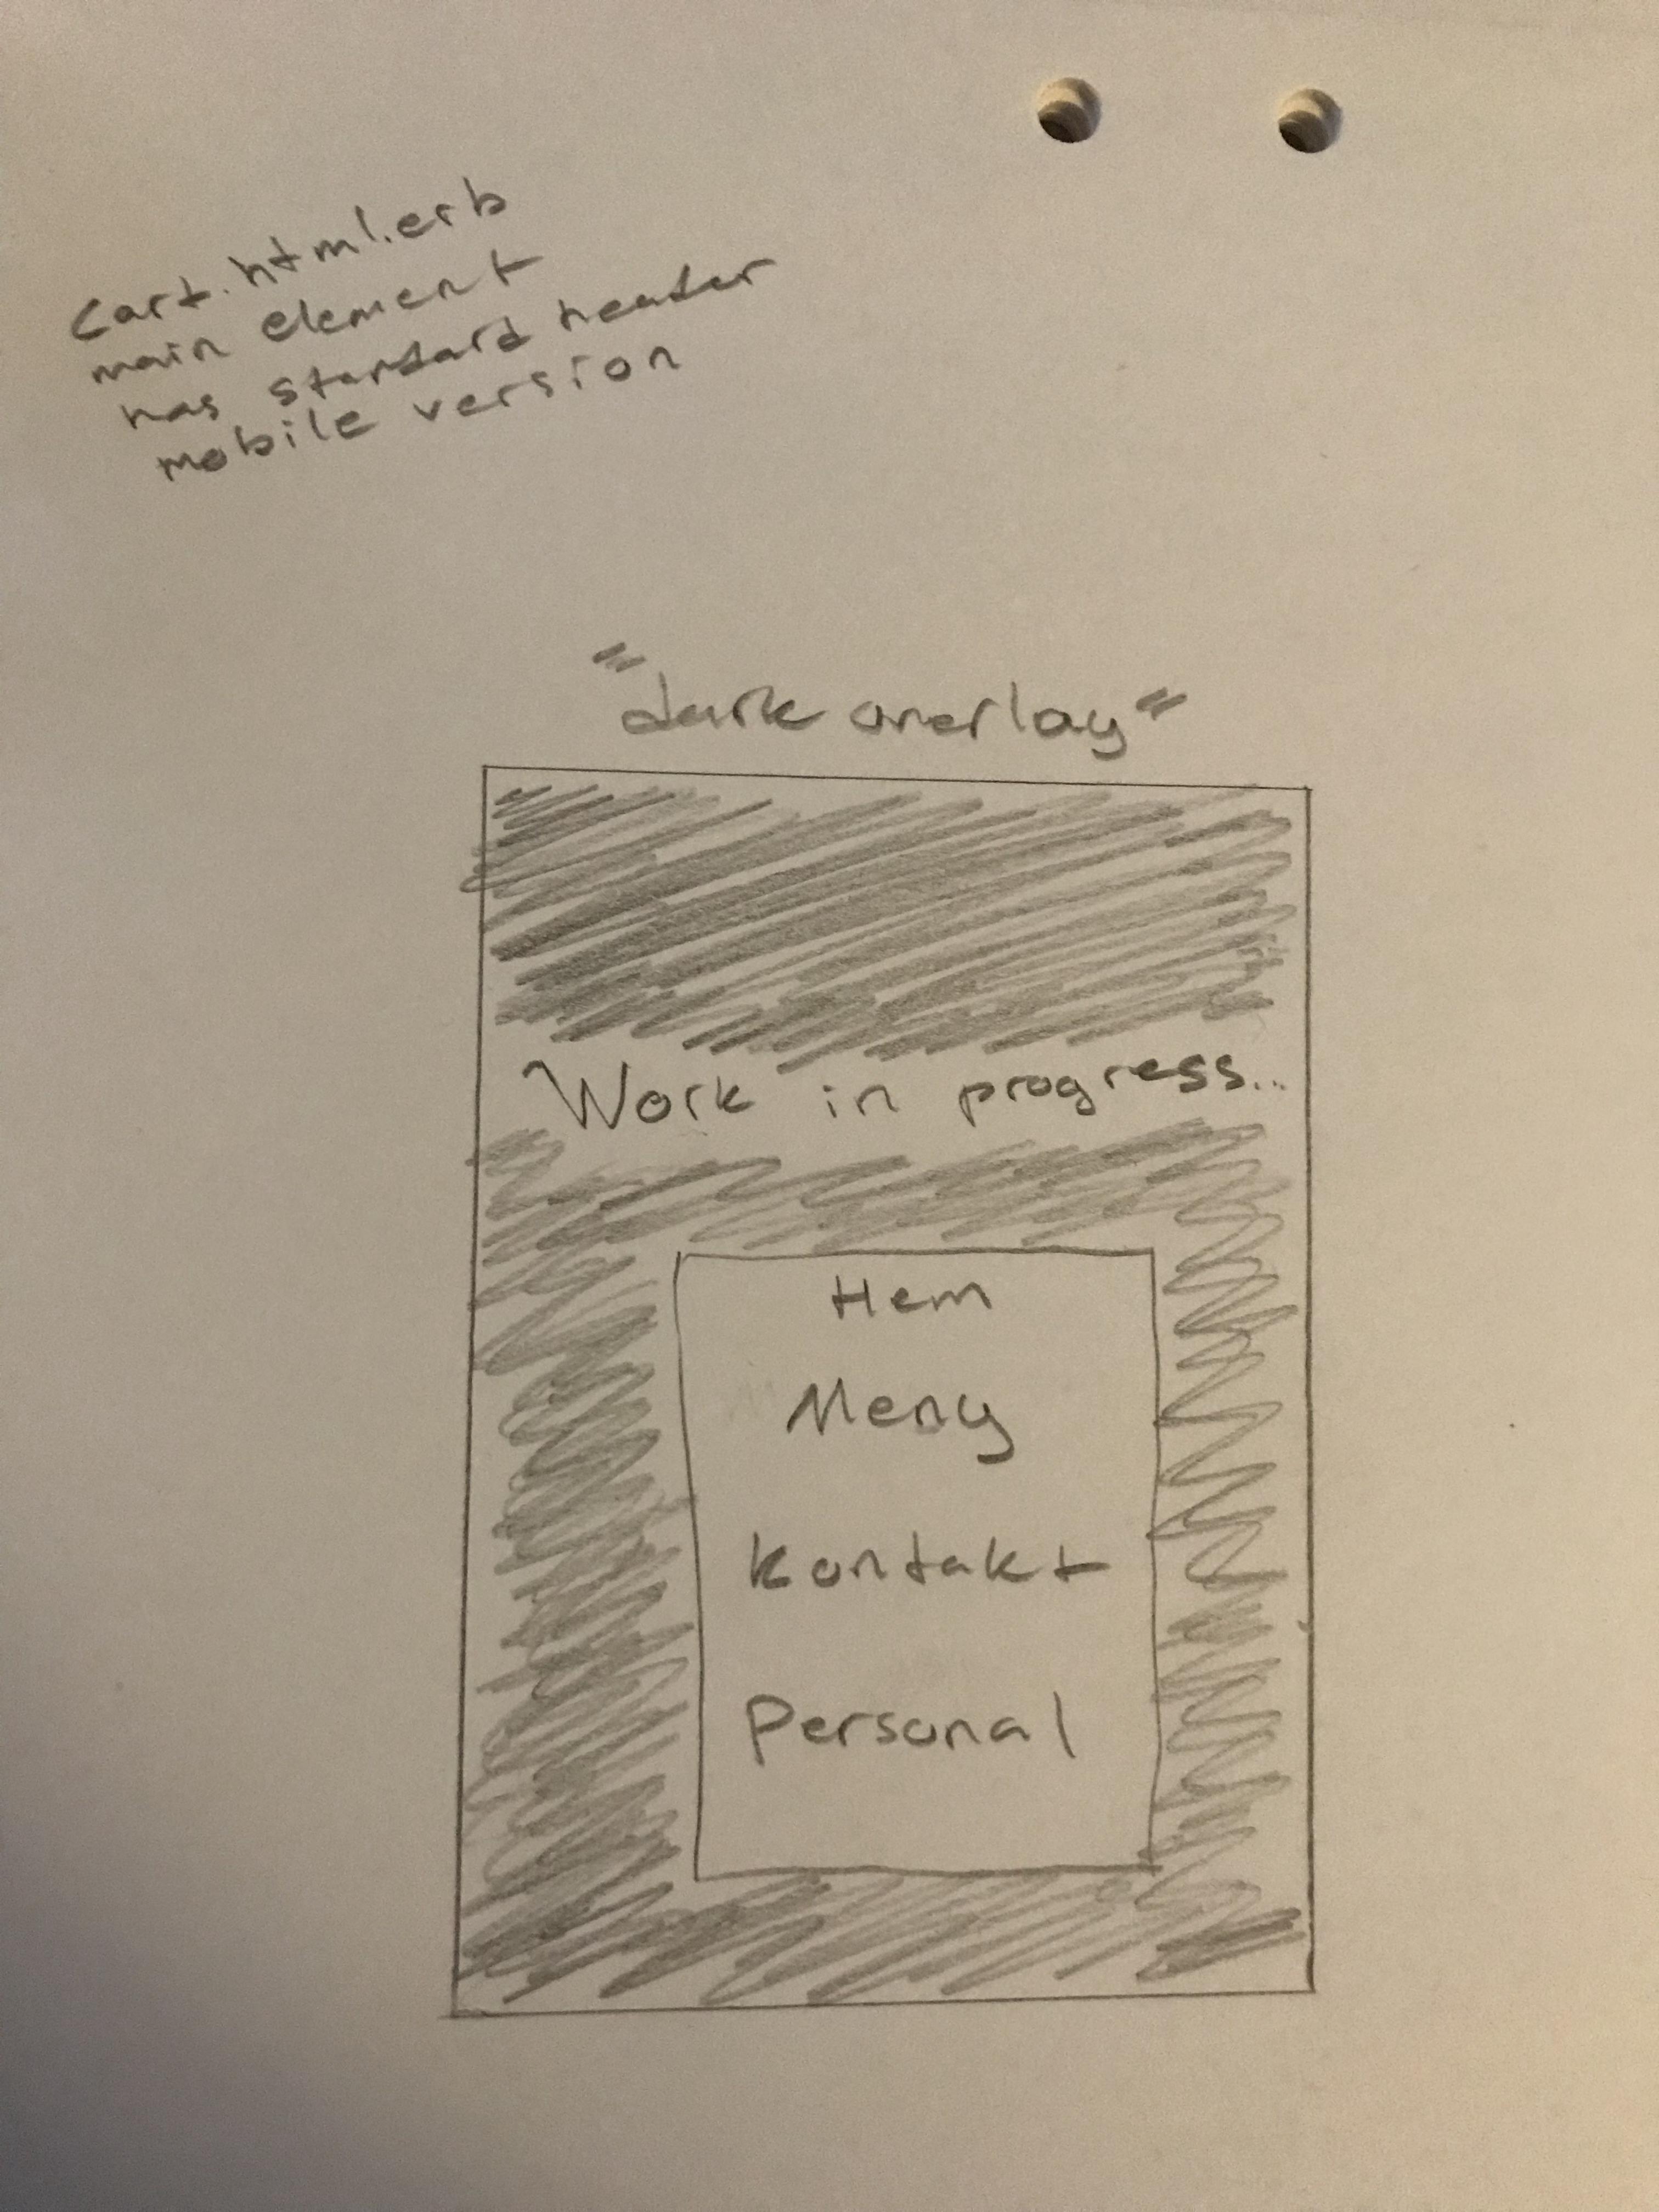 Cart.html.erb
main element
has standard header
mobile version
"dark overlay"
Work in progress...
Hem
Meny
Kontakt
Personal